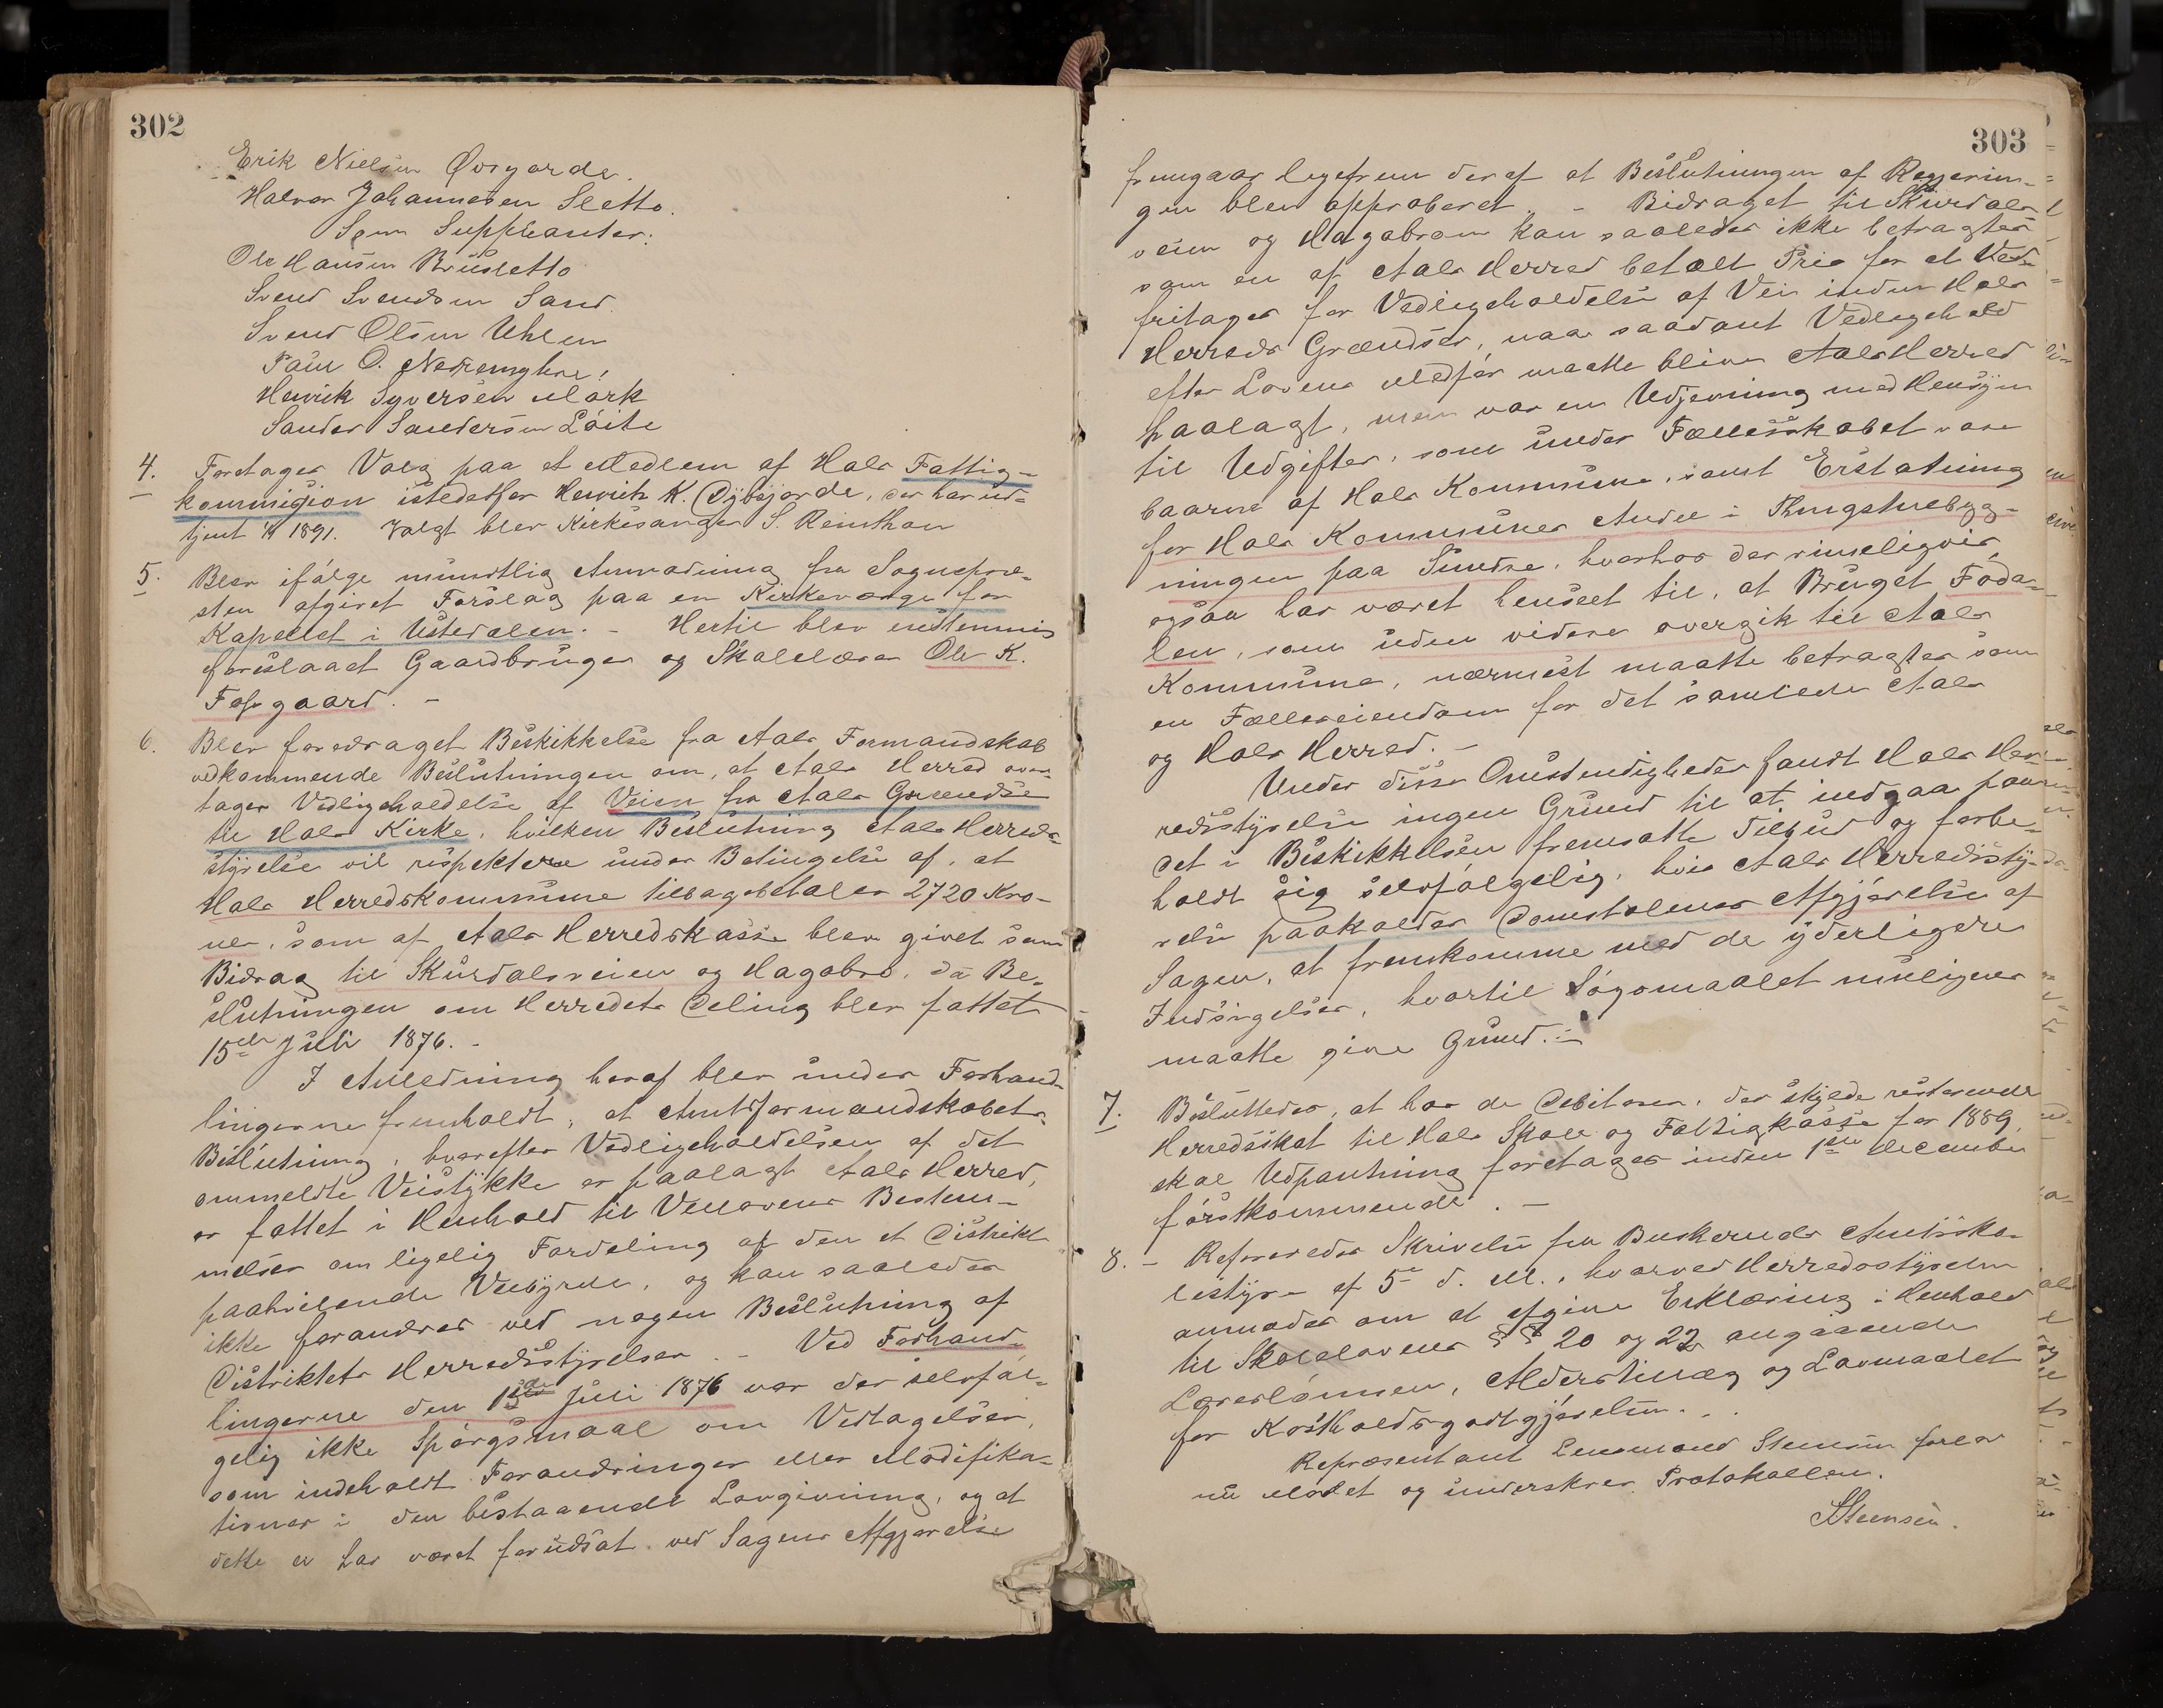 302
Erik Nielsen Øvrgarde.
Halvor Johannesen Sletto.
Som Suppleanter:
Ole Hansen Brusletto
Svend Svendsen Sand
Svend Olsen Uhlen
Paul O.
Henrik Syversen Mørk
Sander Sandersen Løite
4. Foretages Valg paa et Medlem af Hols Fattig-
kommision istedetfor Henrik K. der har ud-
tjent 1891. Valgt blev Kirkesanger S. Reinthon
5. Blev ifølge mundtlig Anmodning fra Sognepræ-
sten afgivet Forslag paa en Kirkeværge for
Kapellet i Ustedalen. - Hertil blev enstemmig
foreslaaet Gaardbruger og Skolelærer Ole K.
Fosgaard. -
6. Blev foredraget Beskikkelse fra Aals Formandskab
vedkommende Beslutningen om, at Aals Herred over-
tager Vedligeholdelse af Veien fra Aals Grændse
til Hols Kirke, hvilken Beslutning Aals Herreds-
styrelse vil respektere under Betingelse af, at
Hols Herredskommune tilbagebetaler 2720 Kro-
ner, som af Aals Herredskasse blev givet som
Bidrag til Skurdalsveien og Hagabro, da Be-
slutningen om Herredets Deling blev fattet
15de Juli 1876. -
I Anledning heraf blev under Forhand-
lingerne fremholdt, at Amtsformandskabets
Beslutning, hvorefter Vedligeholdelsen af det
ommeldte Veistykke er paalagt Aals Herred,
er fattet i Henhold til Veilovens Bestem-
melser om ligelig Fordeling af den et Distrikt
paahvilende Veibyrde, og kan saaledes
ikke forandres ved nogen Beslutning af
Distriktets Herredsstyrelser. - Ved Forhand-
lingerne den 15de Juli 1876 var der selvføl-
gelig ikke Spørgsmaal om Vedtagelser,
som indeholdt Forandringer eller Modifika-
tioner i den bestaaende Lovgivning, og at
dette ei har været forudsat ved Sagens Afgjørelse
303
fremgaar ligefrem deraf at Beslutningen af Regjerin-
gen blev approberet. - Bidraget til Skurdals-
veien og Hagabroen kan saaledes ikke betragtes
som en af Aals Herred betalt Pris for at
fritages for Vedligeholdelse af Vei inden Hols
Herreds Grændser, naar saadant Vedligehold
efter Lovens Medfør maatte blive Aals Herred
paalagt, men var en Udjevning med Hensyn
til Udgifter, som under Fællesskabet vare
baarne af Hols Kommune, samt Erstatning
for Hols Kommunes Andel i Thingstuebyg-
ningen paa Sundre, hvorhos der rimeligvis
ogsaa har været henseet til, at Bruget Foda-
len, som uden videre overgik til Aals
Kommune, nærmest maatte betragtes som
en Fælleseiendom for det samlede Aals
og Hols Herred. -
Under disse Omstendigheder fandt Hols Her-
redsstyrelse ingen Grund til at indgaa paa
det i Beskikkelsen fremsatte Tilbud og forbe-
holdt sig selvfølgelig, hvis Aals Herredssty-
relse paakalder Domstolenes Afgjørelse af
Sagen, at fremkomme med de yderligere
Indsigelser, hvortil Søgsmaalet muligens
maatte give Grund. -
7. Besluttedes, at hos de Debitorer, der skylde resterende
Herredsskat til Hols Skole og Fattigkasse for 1889,
skal Udpantning foretages inden 1ste December
førstkommende. -
8. - Refereredes Skrivelse fra Buskeruds Amtssko-
lestyre af 5te d. M., hvorved Herredsstyrelsen
anmodes om at afgive Erklæring i Henhold
til Skolelovens §§ 20 og 22 angaaende
Lærerlønnen, Alderstillæg og Lovmaalet
for Kostholdsgodtgjørelsen. -
Repræsentant Lensmand Steensen forlod
nu Mødet og underskrev Protokollen.
SSteensen.